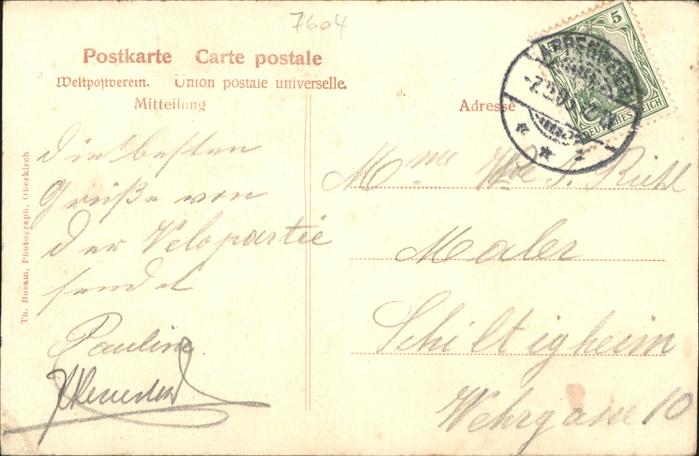 7604
Postkarte Carte postale
Weltpostverein. Union postale universelle.
Mitteilung
Adresse
5
DEUTSCHES REICH
APPENWEIER
Die besten
Grüße von
der Velopartie
sendet
Pauline
Mme Wwe S. Riehl
Maler
Schiltigheim
Wehrgasse 10
Th. Busam, Photograph, Oberkirch